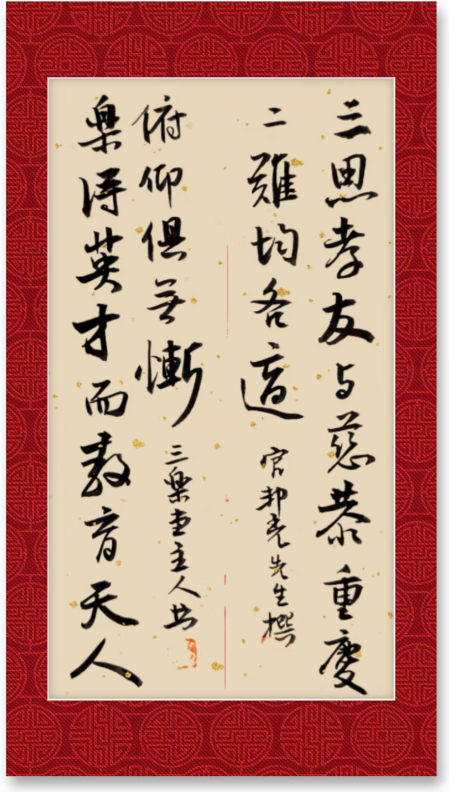 三思孝友与慈恭重慶
二難均各適
先生撰
樂得英才而教育天人
俯仰俱無慚
三樂堂主人书